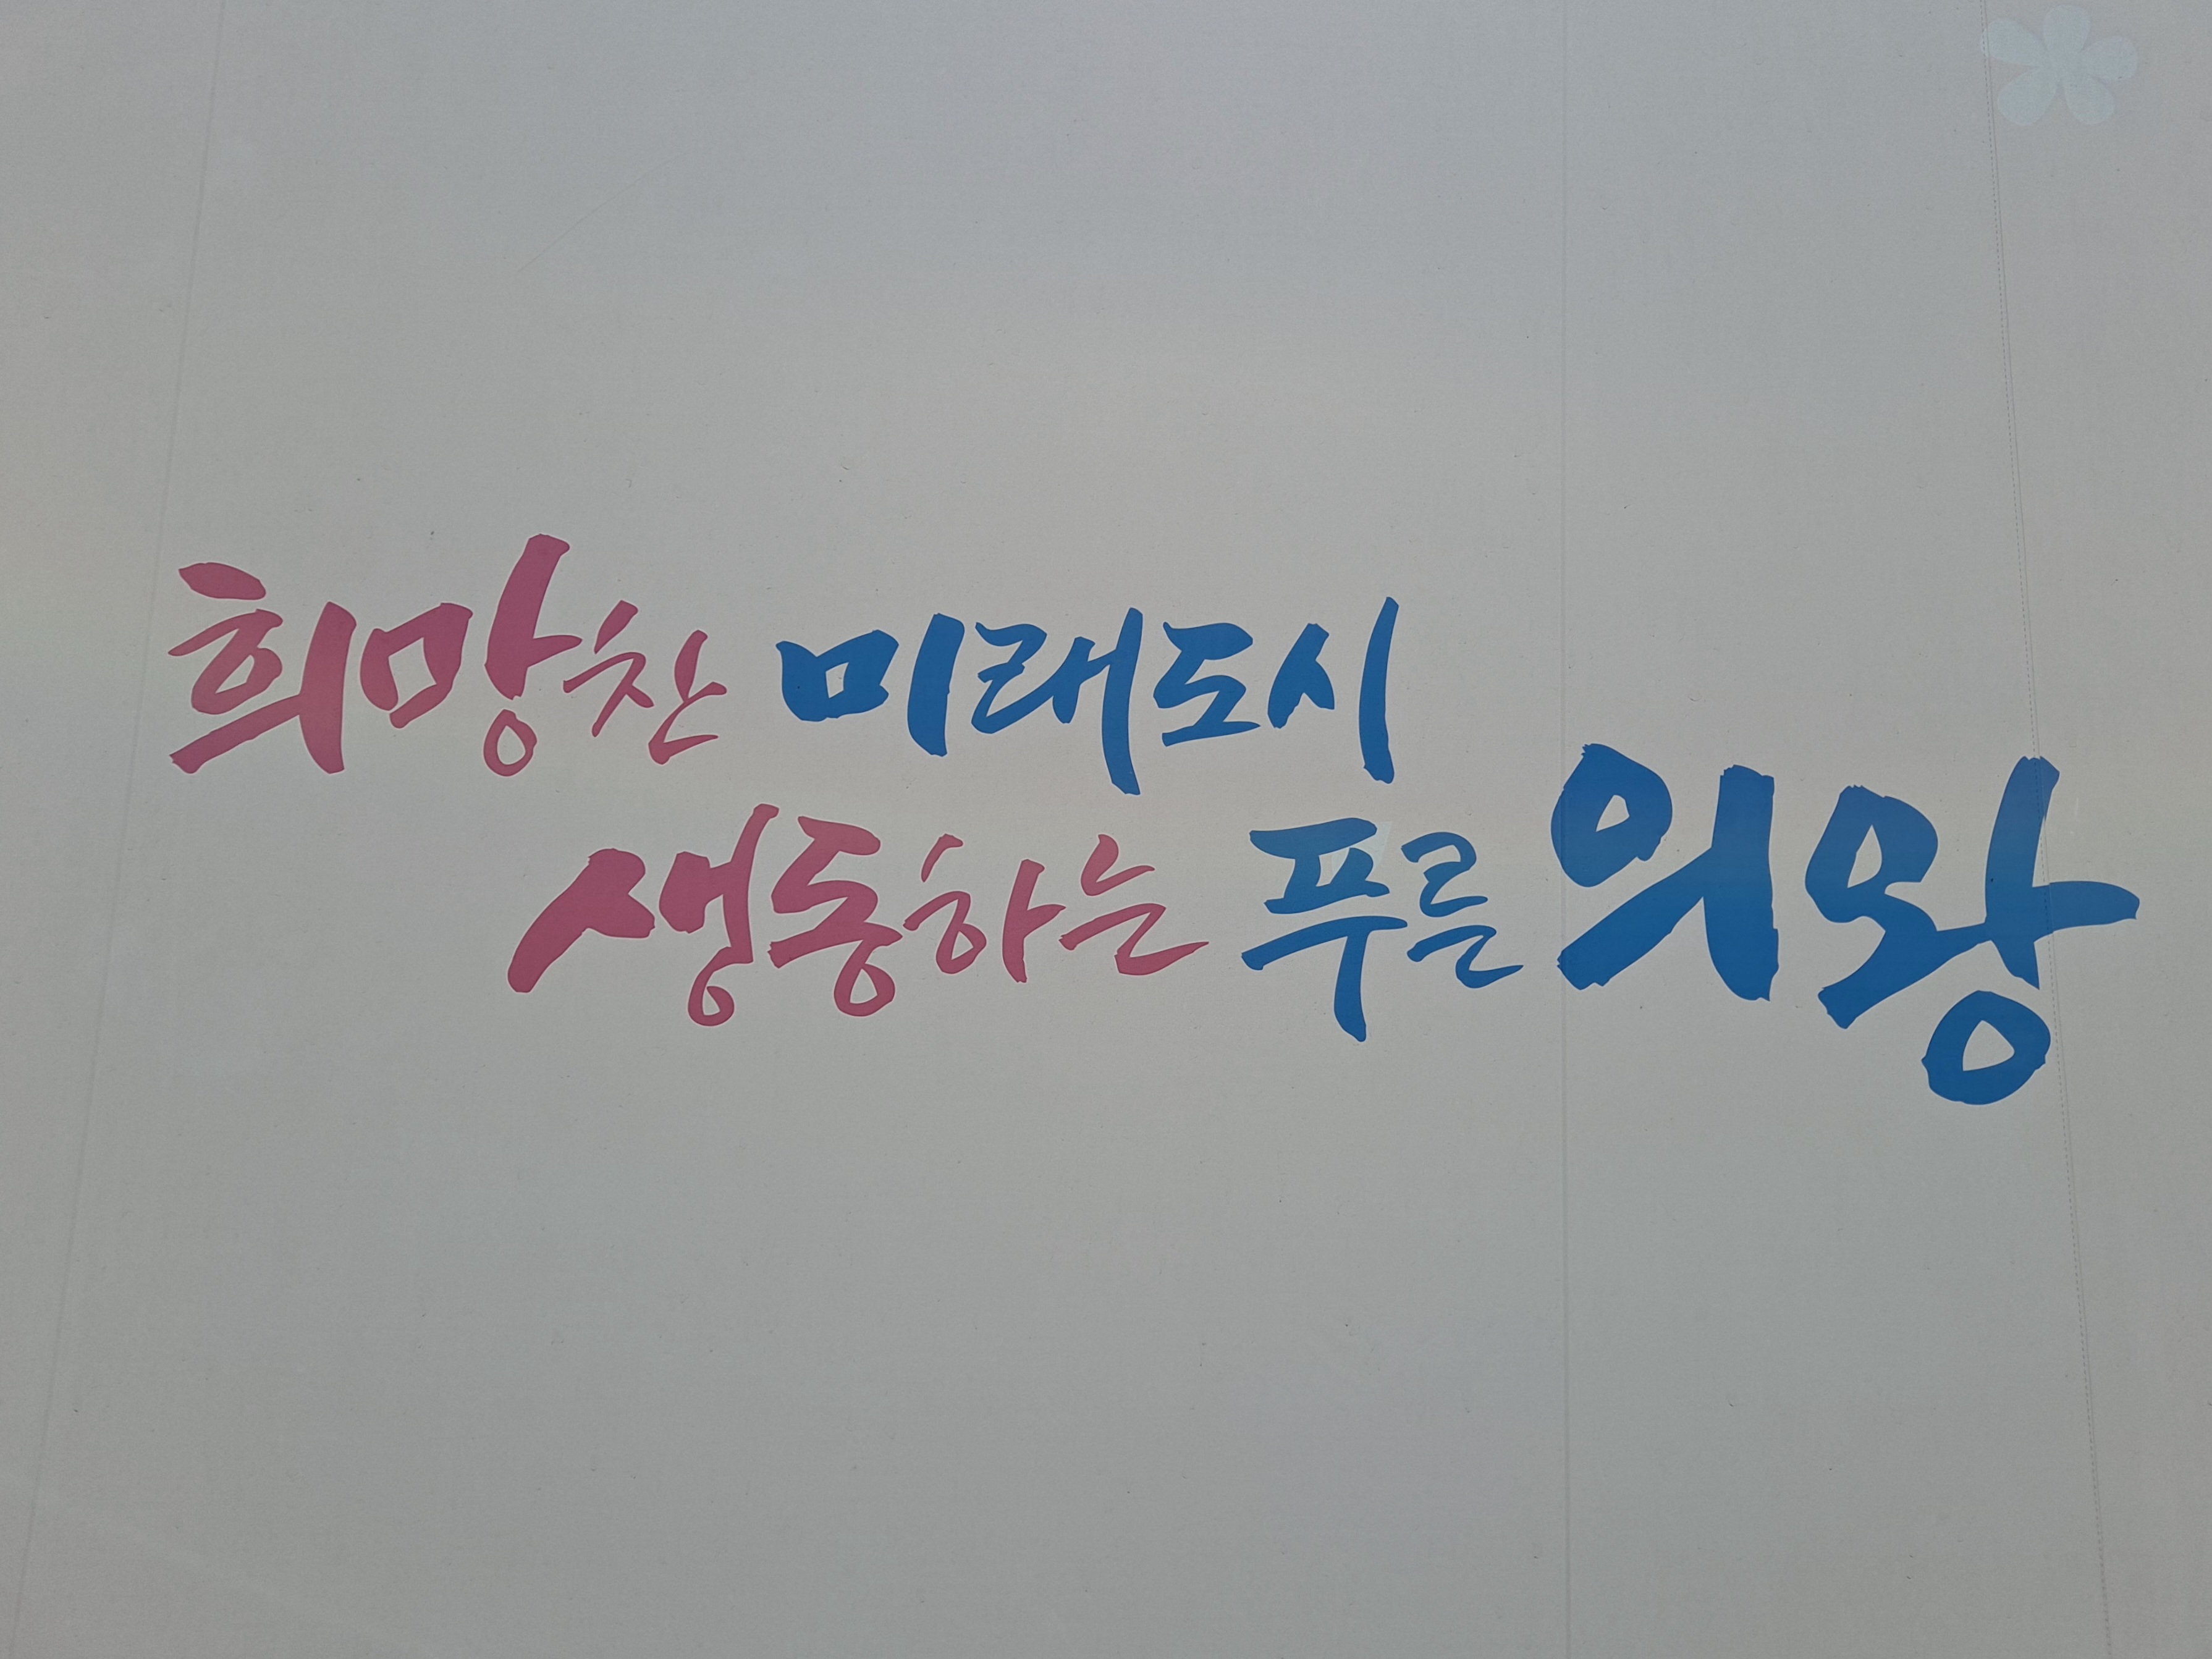 희망찬 미래도시
생동하는 푸른 의왕